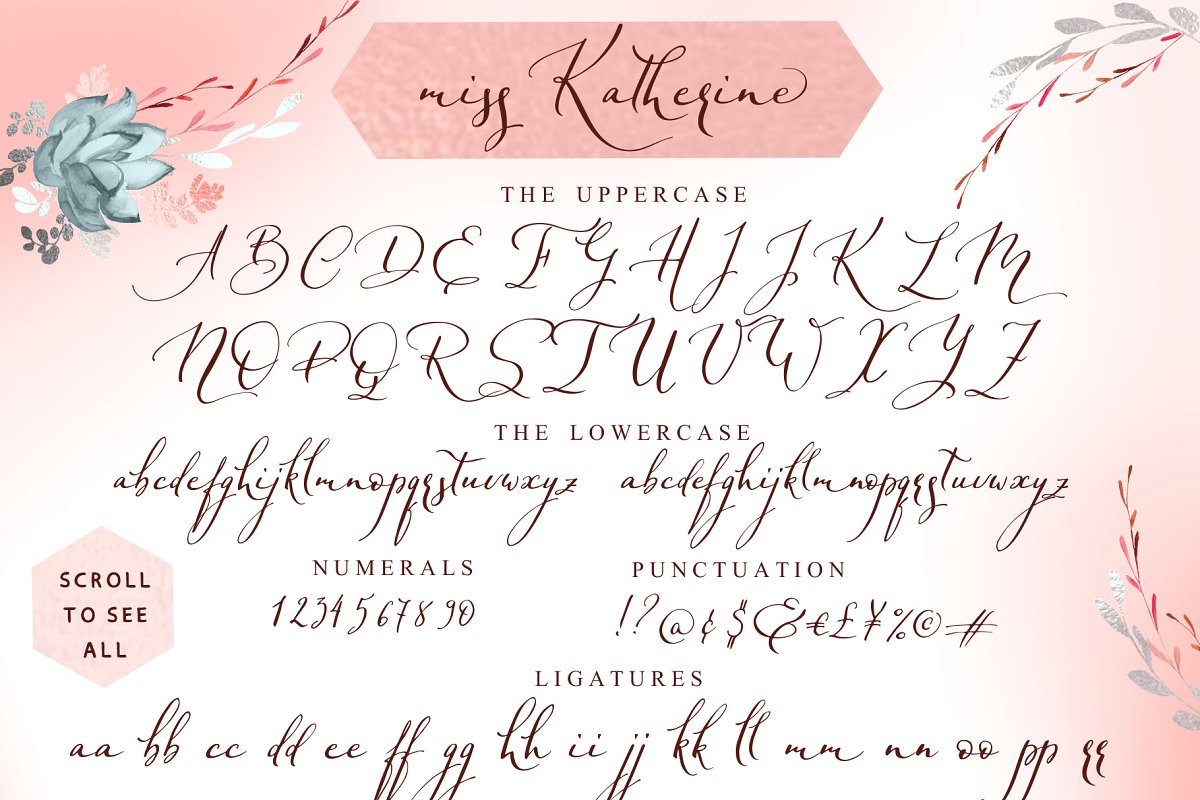 miss Katherine
THE UPPERCASE
A B C D E F G H I J K L M
N O P Q R S T U V W X Y Z
THE LOWERCASE
abcdefghijklmnopqrstuvwxyz abcdefghijklmnopqrstuvwxyz
NUMERALS
1234567890
PUNCTUATION
!?@¢$&€£¥%©#
SCROLL
TO SEE
ALL
LIGATURES
aa bb cc dd ee ff gg hh ii jj kk ll mm nn oo pp qq